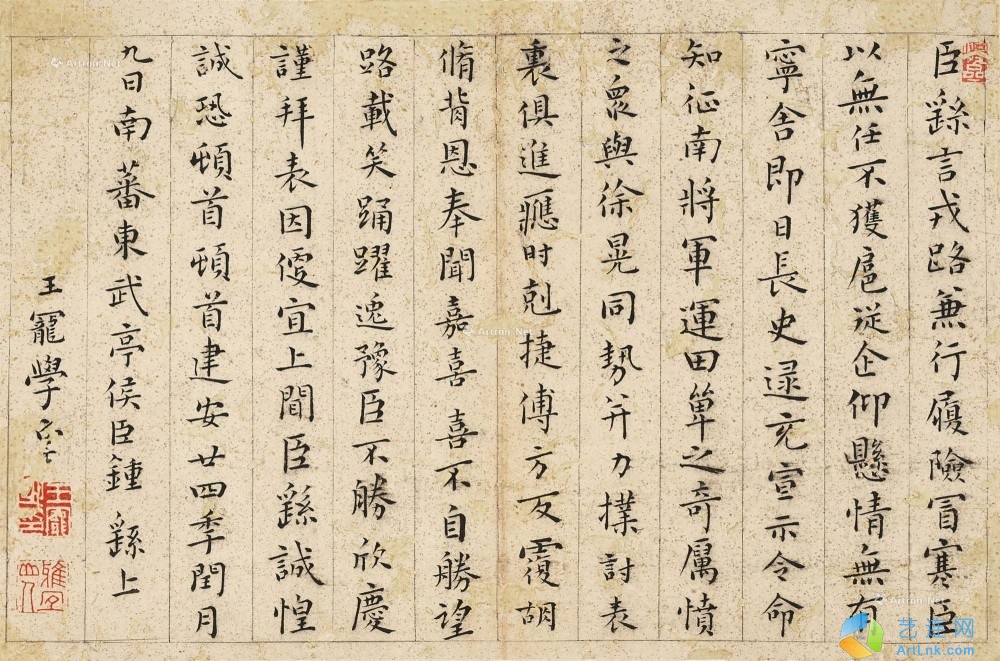 臣繇言戎路兼行履險冒寒臣
以無任不獲扈從企仰懸情無有
寧舍即日長史逯充宣示令命
知征南將軍運田單之奇厲憤
之衆與徐晃同勢并力撲討表
裏俱進應時剋捷傅方反覆胡
脩背恩奉聞嘉喜喜不自勝望
路載笑踊躍逸豫臣不勝欣慶
謹拜表因便宜上聞臣繇誠惶
誠恐頓首頓首建安廿四季閏月
九日南蕃東武亭侯臣鍾繇上
王寵學書
王寵之印
雅宜山人
Artron.Net
Artron.Net
Artron.Net
Artron.Net
艺连网
ArtLnk.com